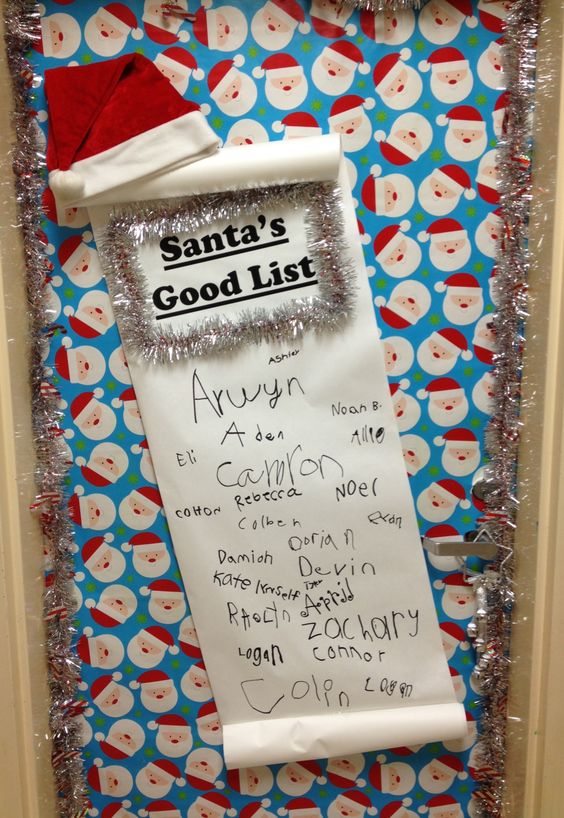 Santa's
Good List
Ashley
Arwyn
Noah B.
Aden
Allie
Eli
Camron
Colton Rebecca Noel
Colben
Dorian
Damion Devin
Kate Kinsel
Tyler
Zachary
Logan Connor
Colin Logan